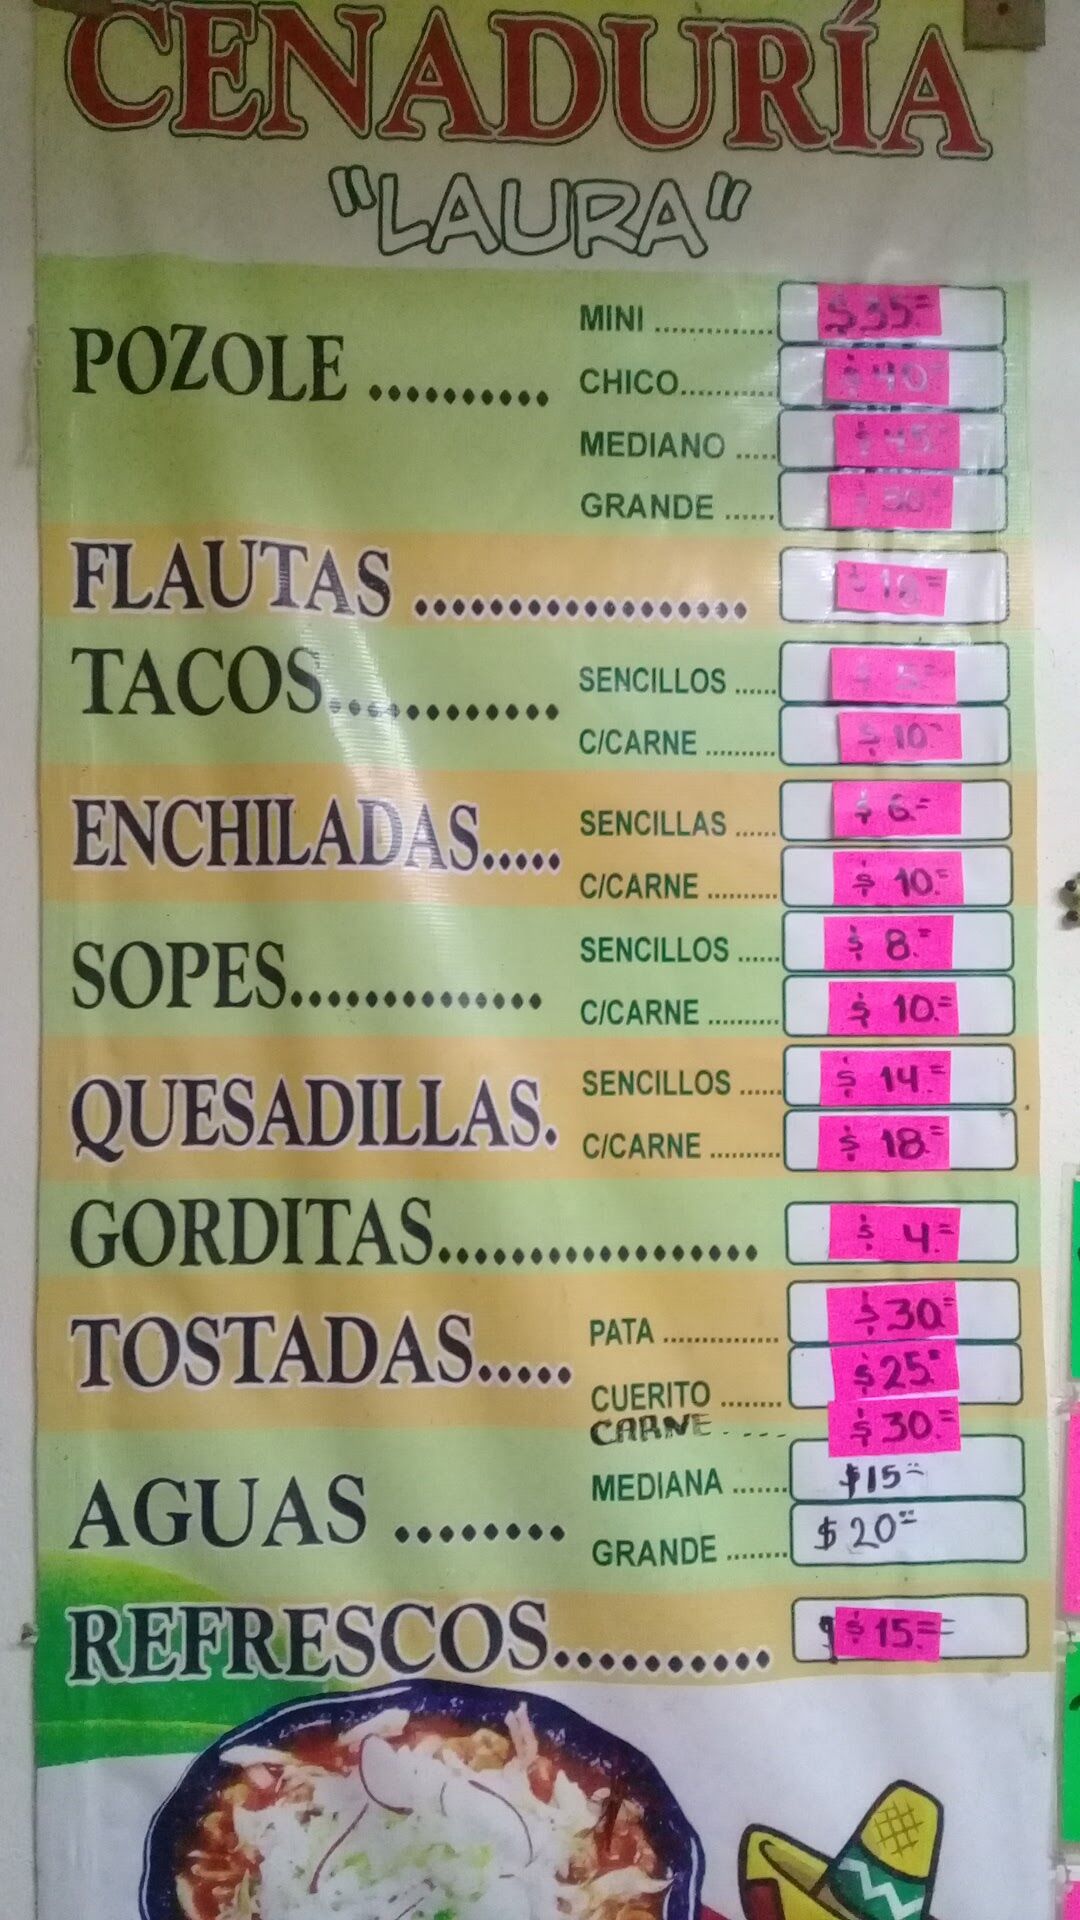 CENADURÍA
"LAURA"
POZOLE .......... MINI ............. $35.=
CHICO............ $40.=
MEDIANO ..... $45.=
GRANDE ......
FLAUTAS ...................
TACOS............. SENCILLOS ...... $5.=
C/CARNE .......... $10.=
ENCHILADAS..... SENCILLAS ...... $6.=
C/CARNE .......... $10.=
SOPES.............. SENCILLOS ...... $8.=
C/CARNE .......... $10.=
QUESADILLAS. SENCILLOS ...... $14.=
C/CARNE .......... $18.=
GORDITAS.................. $4.=
TOSTADAS..... PATA ............... $30.=
CUERITO ........ $25.=
CARNE..... $30.=
AGUAS ........ MEDIANA ....... $15=
GRANDE ........ $20=
REFRESCOS.......... $15.=